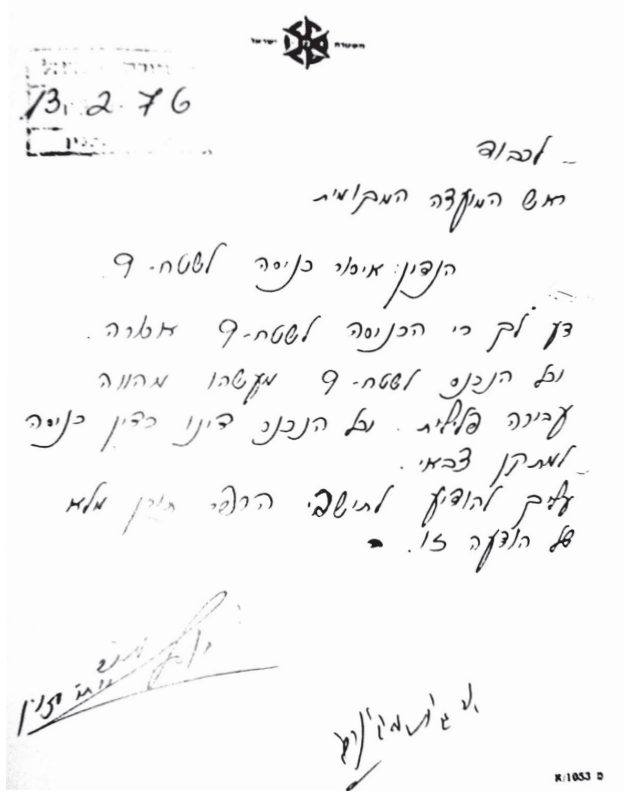 משטרת ישראל
13.2.76
לכבוד
ראש המועצה המקומית
הנדון: איסור כניסה לשטח-9.
דע לך כי הכניסה לשטח-9 אסורה.
וכל הנכנס לשטח-9 מעשהו מהווה
עבירה פלילית. וכל הנכנס דינו כדין כניסה
למתקן צבאי.
עליך להודיע לתושבי הכפר תוכן מלא
של הודעה זו.
א/1053 ם